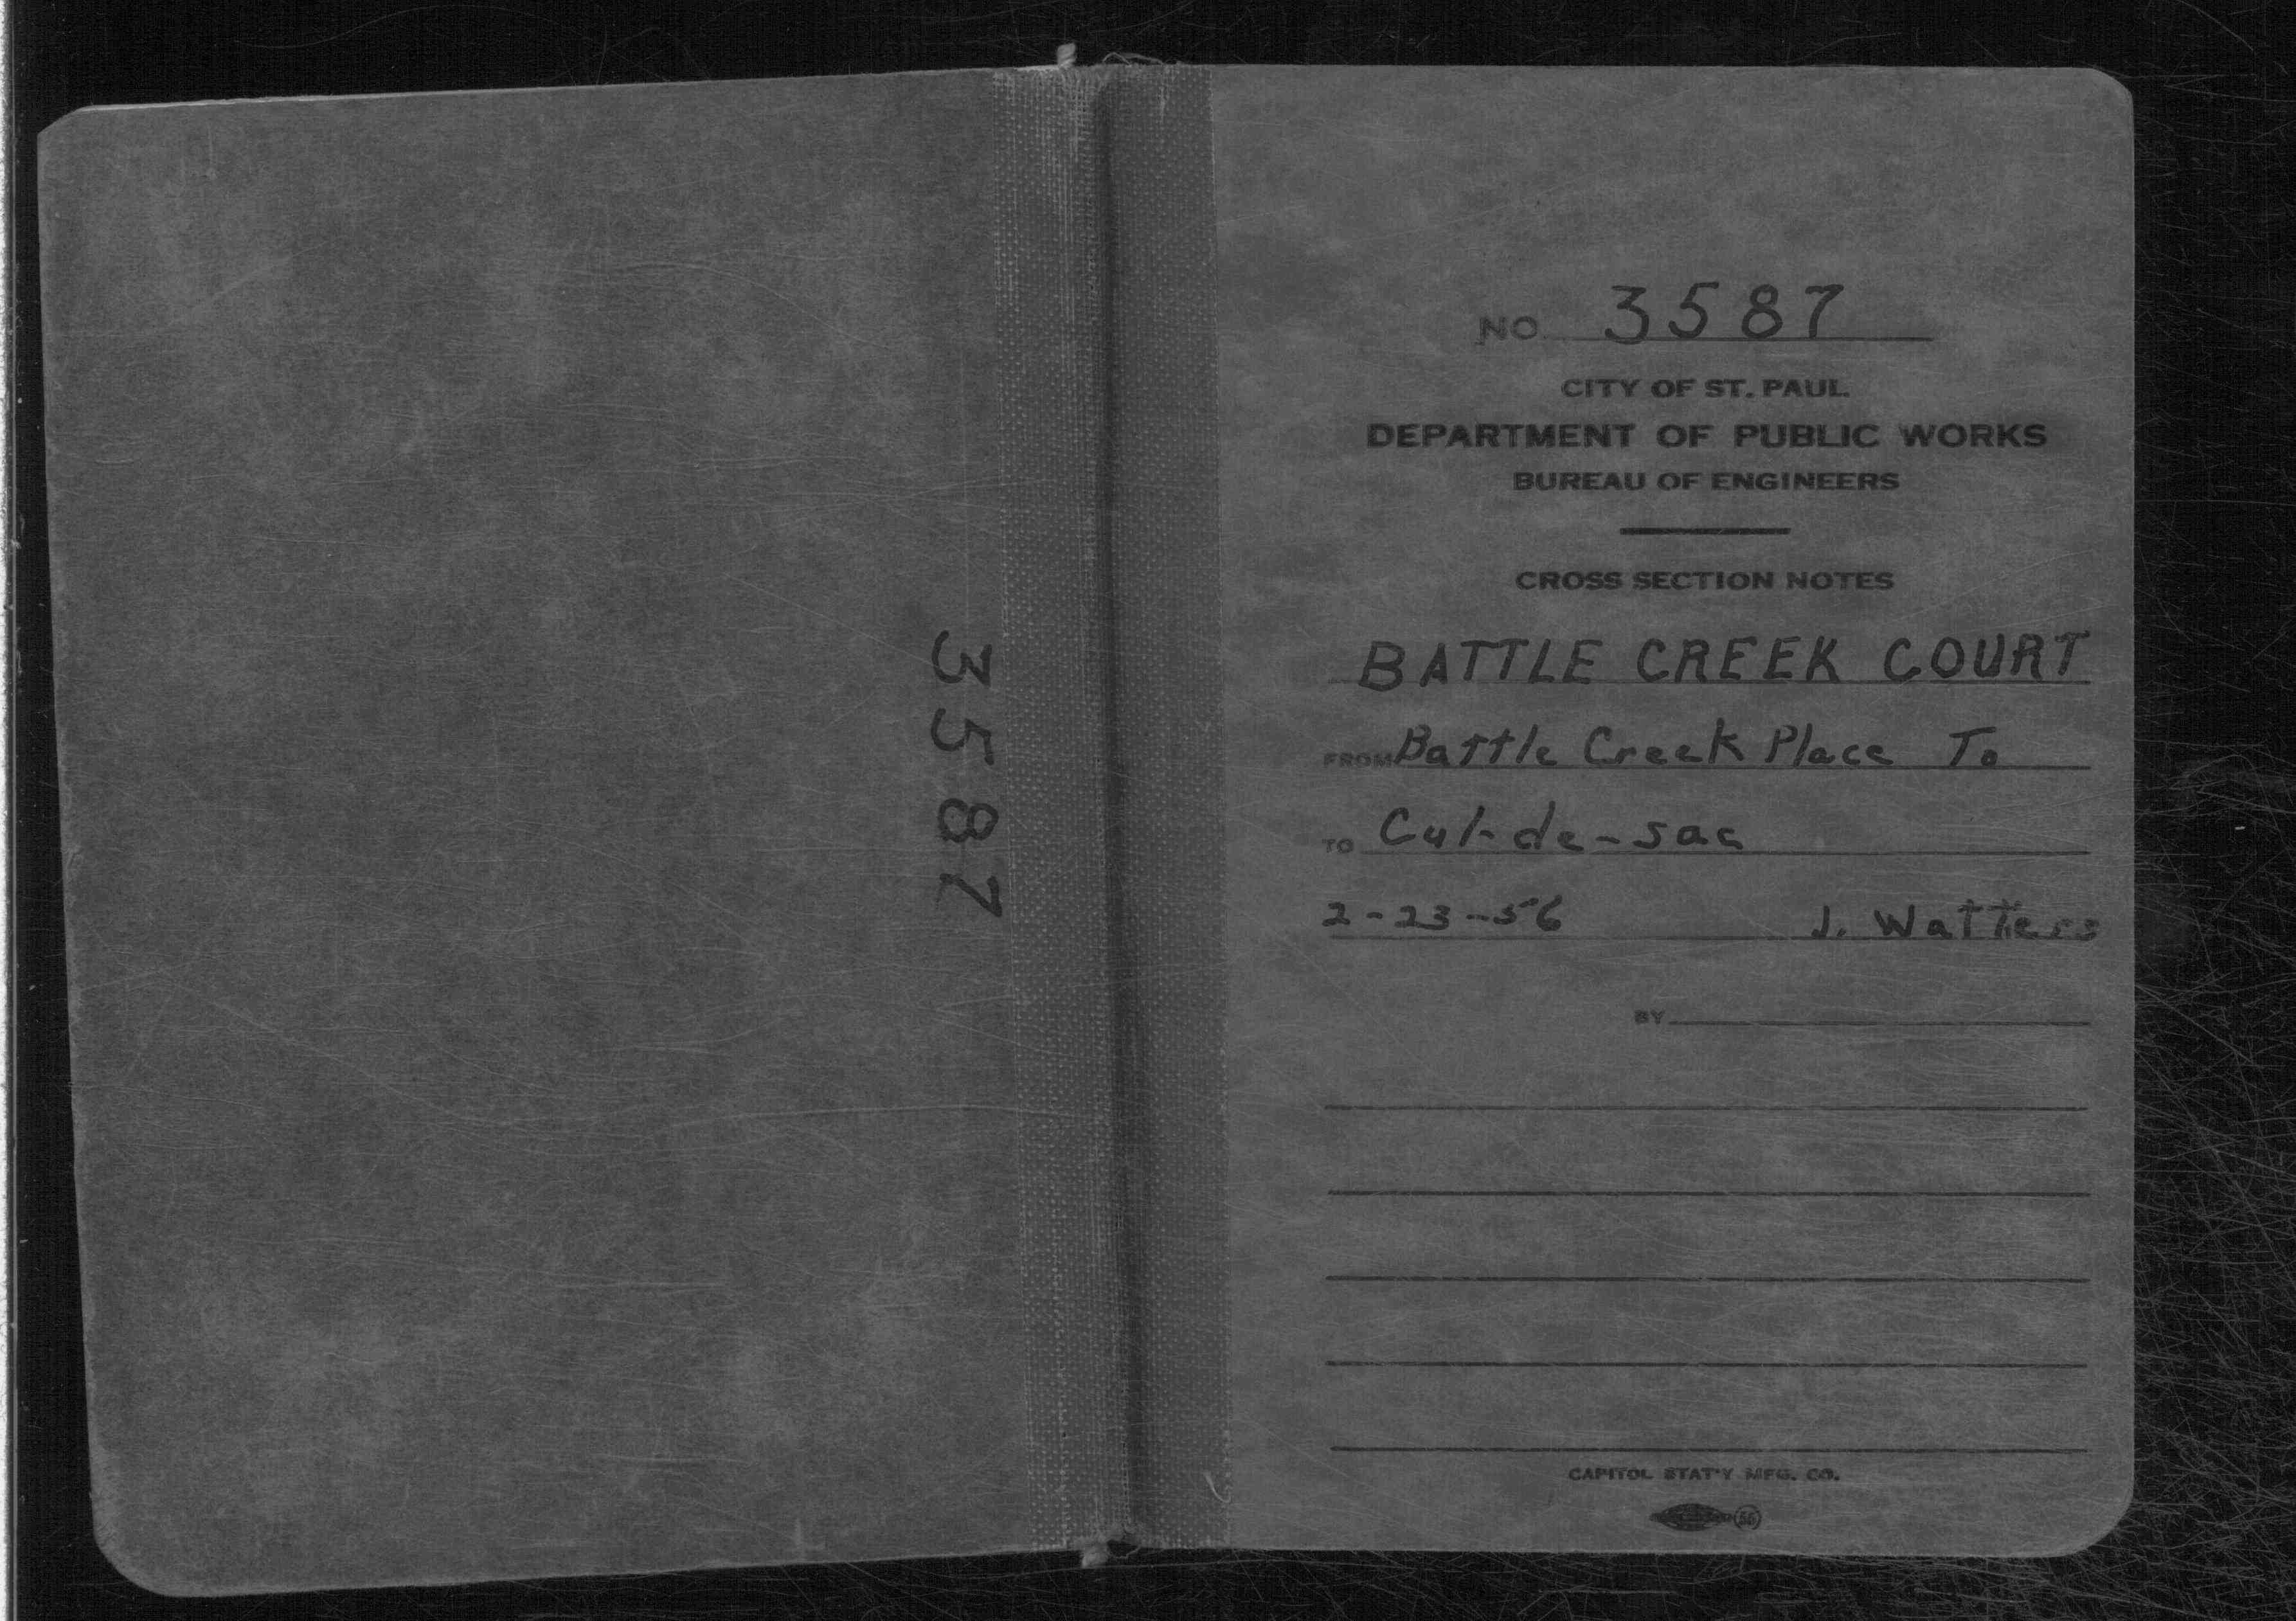 3587
NO 3587
CITY OF ST. PAUL
DEPARTMENT OF PUBLIC WORKS
BUREAU OF ENGINEERS
CROSS SECTION NOTES
BATTLE CREEK COURT
FROM Battle Creek Place To
TO Cul-de-sac
2-23-56 J. Watters
BY
CAPITOL STAT'Y MFG. CO.